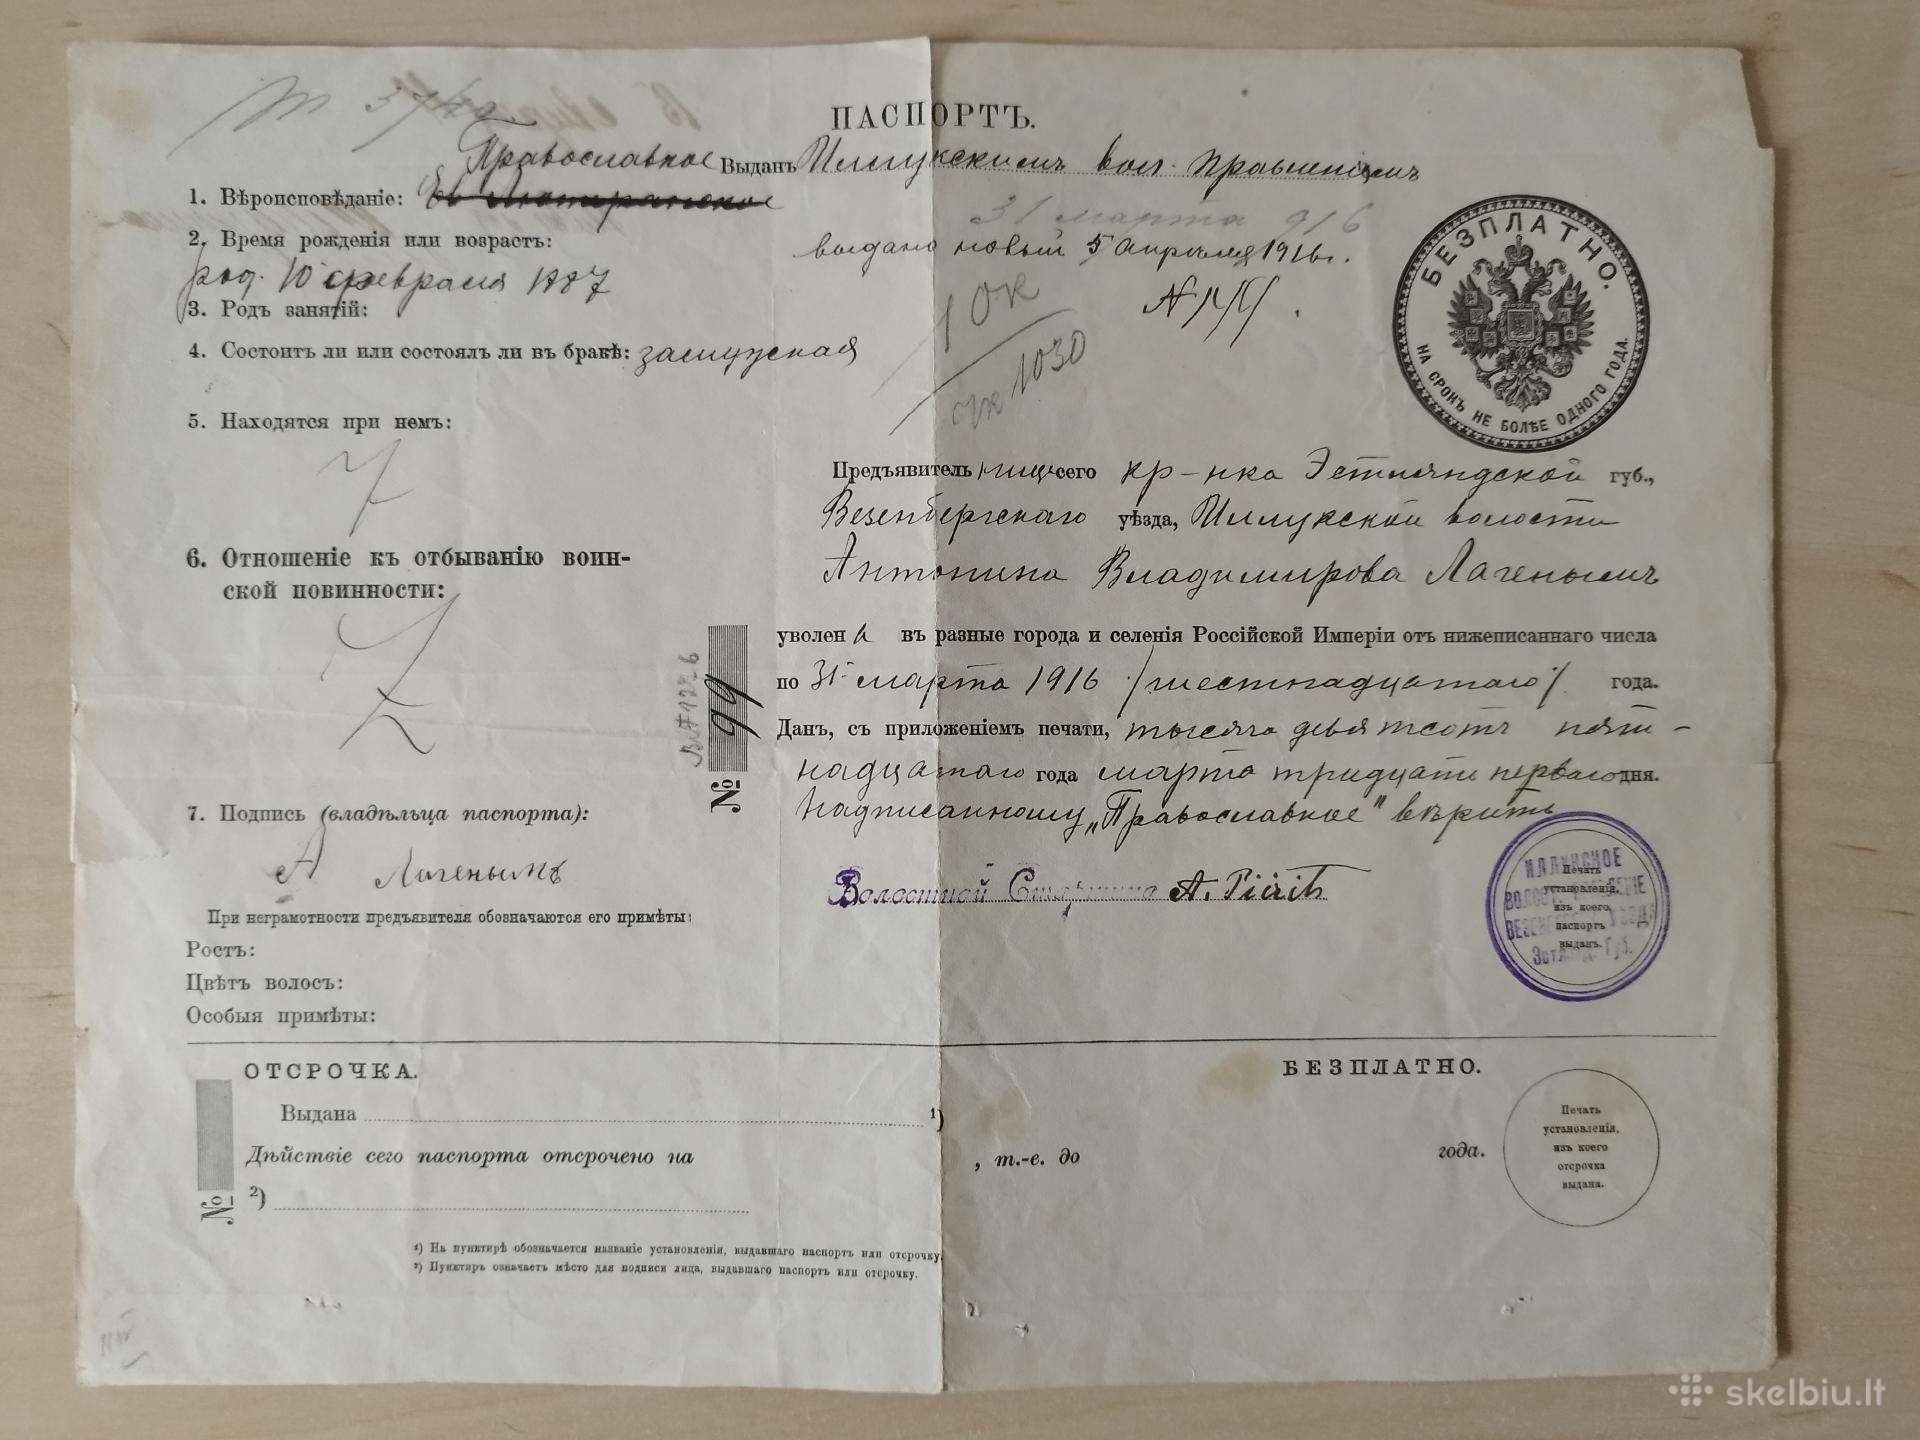 ПАСПОРТЪ.
Православное
Выданъ Иллукскимъ вол. правленіемъ
1. Вѣроисповѣданіе: Ев Лютеранское
31 марта 916
2. Время рожденія или возрастъ:
выданъ новый 5 Апрѣля 1916 г.
род. 10 февраля 1887
3. Родъ занятій:
1030
БЕЗПЛАТНО.
НА СРОКЪ НЕ БОЛѢЕ ОДНОГО ГОДА.
4. Состоитъ ли или состоялъ ли въ бракѣ: замужская
5. Находятся при немъ:
6. Отношеніе къ отбыванію воин-
ской повинности:
Предъявительница сего кр-нка Эстляндской губ.,
Везенбергскаго уѣзда, Иллукской волости
Антонина Владимирова Лагенымъ
уволена въ разные города и селенія Россійской Имперіи отъ нижеписаннаго числа
по 31 марта 1916 /шестнадцатаго/ года.
Данъ, съ приложеніемъ печати, тысяча девятьсотъ пят-
надцатаго года марта тридцать перваго дня.
Надписанному „Православное" вѣрить
№ 99
7. Подпись (владѣльца паспорта):
А Лагенымъ
Волостной Старшина A. Piirit
ИЛЛУКСКОЕ
ВОЛОСТНОЕ ПРАВЛЕНІЕ
ВЕЗЕНБЕРГСКАГО УѢЗДА
Эстлянд. Губ.
Печать
установленія,
изъ коего
паспортъ
выданъ.
При неграмотности предъявителя обозначаются его примѣты:
Ростъ:
Цвѣтъ волосъ:
Особыя примѣты:
ОТСРОЧКА.
БЕЗПЛАТНО.
Выдана 1)
Дѣйствіе сего паспорта отсрочено на , т.-е. до года.
№ 2)
Печать
установленія,
изъ коего
отсрочка
выдана.
1) На пунктирѣ обозначается названіе установленія, выдавшаго паспортъ или отсрочку.
2) Пунктиръ означаетъ мѣсто для подписи лица, выдавшаго паспортъ или отсрочку.
skelbiu.lt